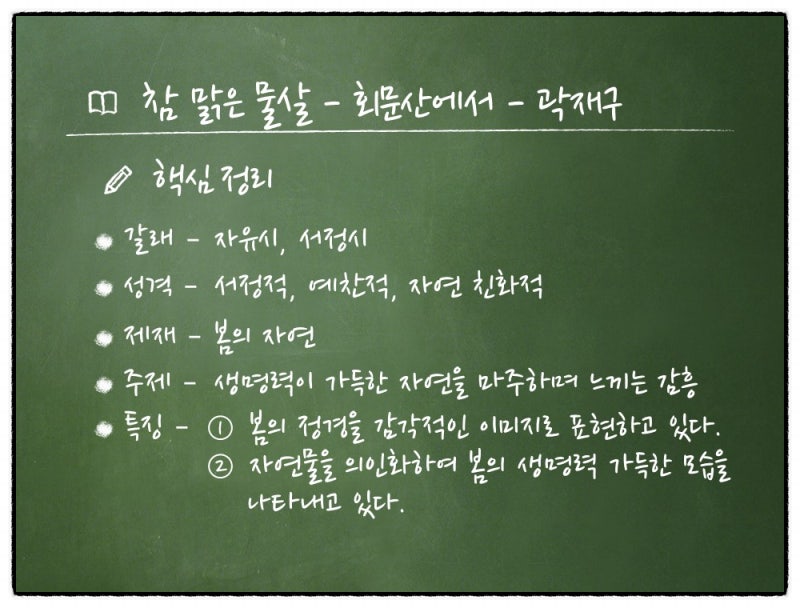 참 맑은 물살 - 회문산에서 - 곽재구
핵심 정리
갈래 - 자유시, 서정시
성격 - 서정적, 예찬적, 자연 친화적
제재 - 봄의 자연
주제 - 생명력이 가득한 자연을 마주하며 느끼는 감흥
특징 - ① 봄의 정경을 감각적인 이미지로 표현하고 있다.
② 자연물을 의인화하여 봄의 생명력 가득한 모습을
나타내고 있다.